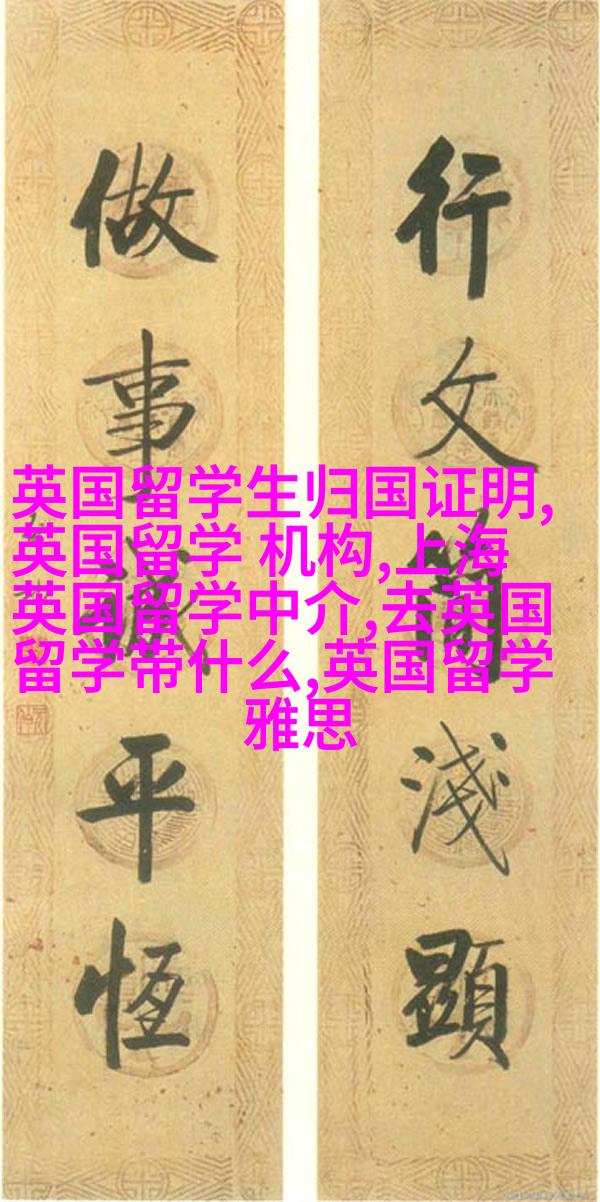 行文簡淺顯
做事誠平恆
英国留学生归国证明,
英国留学 机构,上海
英国留学中介,去英国
留学带什么,英国留学
雅思